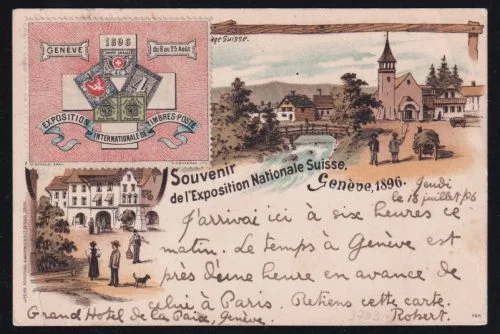 GENÈVE
1896
du 8 au 23 Août
EXPOSITION INTERNATIONALE DE TIMBRES-POSTE
age Suisse.
Souvenir
de l'Exposition Nationale Suisse,
Genève, 1896.
Jeudi
le 16 juillet /96
J'arrivai ici à six heures ce
matin. Le temps à Genève est
près d'une heure en avance de
celui à Paris. Retiens cette carte.
Grand Hotel de la Paix, Genève
Robert.